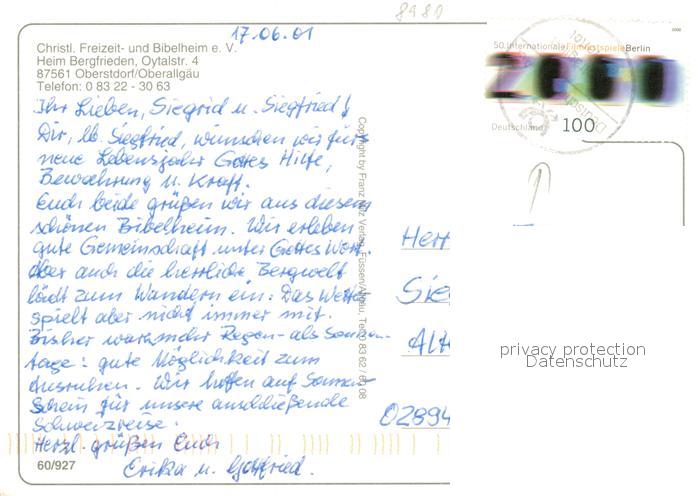 8980
17.06.01
Christl. Freizeit- und Bibelheim e. V.
Heim Bergfrieden, Oytalstr. 4
87561 Oberstdorf/Oberallgäu
Telefon: 0 83 22 - 30 63
Ihr Lieben, Siegrid u. Siegfried!
Dir, lb. Siegfried, wünschen wir fürs
neue Lebensjahr Gottes Hilfe,
Bewahrung u. Kraft.
Euch beide grüßen wir aus diesem
schönen Bibelheim. Wir erleben
gute Gemeinschaft unter Gottes Wort.
Aber auch die herrliche Bergwelt
lädt zum Wandern ein. Das Wetter
spielt aber nicht immer mit.
Bisher war mehr Regen- als Sonnen-
tage: gute Möglichkeit zum
Ausruhen. Wir hoffen auf Sonnen-
schein für unsere anschließende
Schweizreise.
Herzl. grüßen Euch
Erika u. Gottfried.
60/927
Copyright by Franz Verlag, Füssen/Allgäu, Tel. 0 83 62 / 61 08
50. Internationale Filmfestspiele Berlin
2000
Deutschland
100
Herr
Sie
Alt
02894
privacy protection
Datenschutz